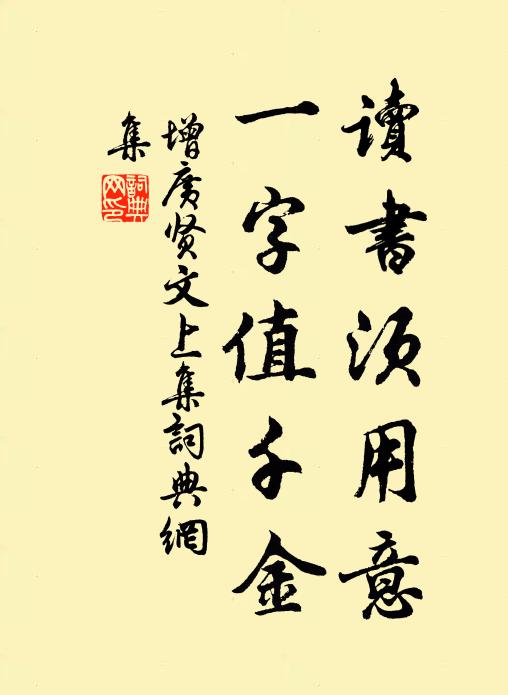 讀書須用意
一字值千金
增廣贤文上集詞典網
集
詞典網印